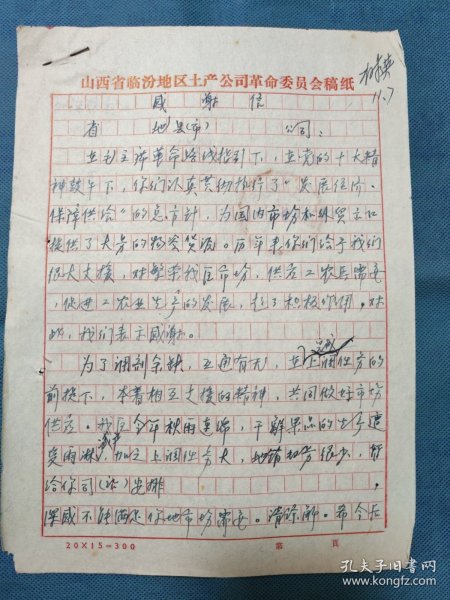 山西省临汾地区土产公司革命委员会稿纸
11.7
感谢信
省 地县(市) 公司:
在毛主席革命路线指引下,在党的十大精
神鼓午下,你们认真贯彻执行了“发展经济、
保障供给”的总方针,为国内市场和外贸出口
提供了大劳的物资货源。历年来你们给于我们
很大支援,对繁荣我区市场,供应工农兵需要
,促进工农业生产的发展,起了积极作用。对
此,我们表示感谢。
为了调剂余缺,互通有无,在上调任务的
完成
前提下,本着相互支援的精神,共同做好市场
供应。我区今年秋雨连绵,干鲜果品的生产遭
受雨淋 加之上调任务大,地销 很少,
减产
给你司 安排 ,
深感不能满足你地市场需要。请谅解。希今后
20×15=300
第 页
孔夫子旧书网
book.kongfz.com